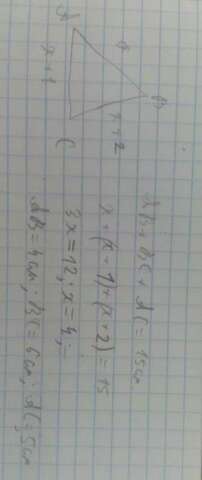 A
x
B
x + 2
x + 1
C
AB + BC + AC = 15см
x + (x + 1) + (x + 2) = 15
3x = 12; x = 4;
AB = 4см; BC = 6см; AC = 5см